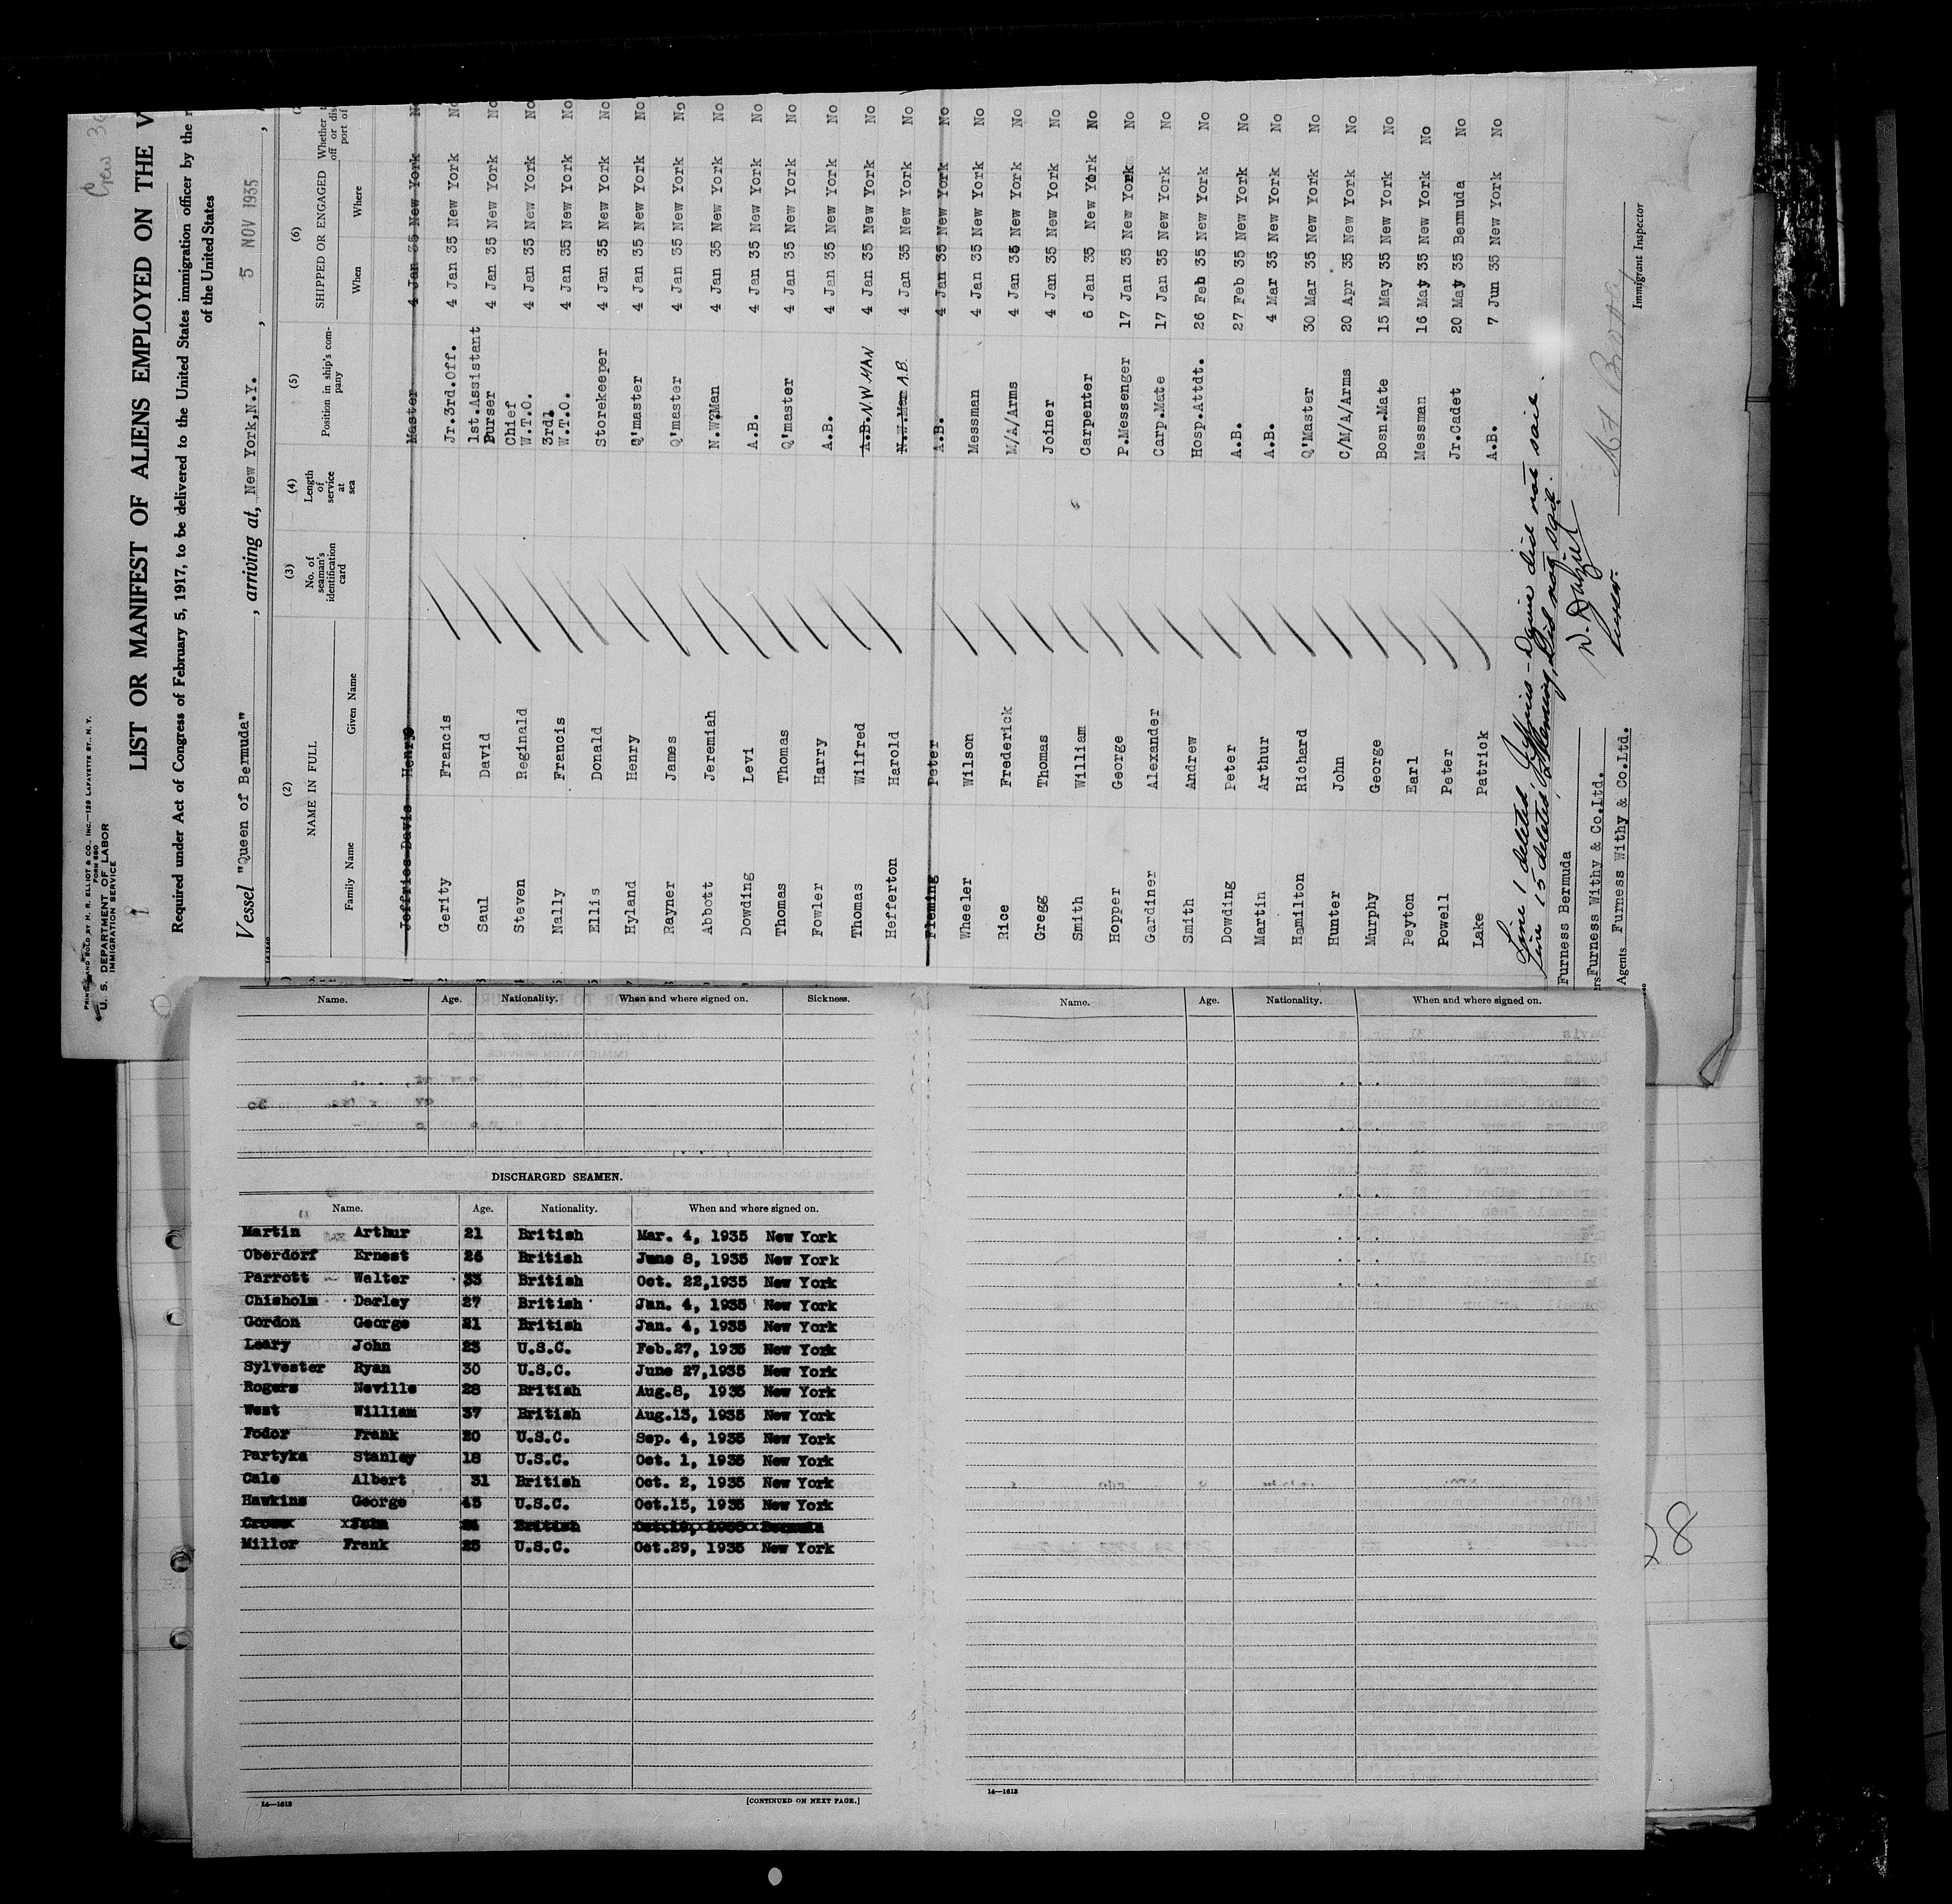 Crew
PRINTED AND SOLD BY H. R. ELLIOT & CO., INC.—129 LAFAYETTE ST., N. Y.
FORM 680
U. S. DEPARTMENT OF LABOR
IMMIGRATION SERVICE
LIST OR MANIFEST OF ALIENS EMPLOYED ON THE V
Required under Act of Congress of February 5, 1917, to be delivered to the United States immigration officer by the r
of the United States
Vessel "Queen of Bermuda", arriving at, New York,N.Y., 5 NOV 1935,
(2) (3) (4) (5) (6)
NAME IN FULL No. of seaman's identification card Length of service at sea Position in ship's company SHIPPED OR ENGAGED Whether
Family Name Given Name When Where
Jeffries-Davis Henry Master 4 Jan 35 New York No
Gerity Francis Jr.3rd.Off. 4 Jan 35 New York No
Saul David 1st.Assistant Purser 4 Jan 35 New York No
Steven Reginald Chief W.T.O. 4 Jan 35 New York No
Nally Francis 3rd. W.T.O. 4 Jan 35 New York No
Ellis Donald Storekeeper 4 Jan 35 New York No
Hyland Henry Q'master 4 Jan 35 New York No
Rayner James Q'master 4 Jan 35 New York No
Abbott Jeremiah N.W?Man 4 Jan 35 New York No
Dowding Levi A.B. 4 Jan 35 New York No
Thomas Thomas Q'master 4 Jan 35 New York No
Fowler Harry A.B. 4 Jan 35 New York No
Thomas Wilfred A.B. N.W MAN 4 Jan 35 New York No
Hefferton Harold N.W.Man A.B. 4 Jan 35 New York No
Fleming Peter A.B. 4 Jan 35 New York No
Wheeler Wilson Messman 4 Jan 35 New York No
Rice Frederick M/A/Arms 4 Jan 35 New York No
Gregg Thomas Joiner 4 Jan 35 New York No
Smith William Carpenter 6 Jan 35 New York No
Hopper George P.Messenger 17 Jan 35 New York No
Gardiner Alexander Carp.Mate 17 Jan 35 New York No
Smith Andrew Hosp.Attdt. 26 Feb 35 New York No
Dowding Peter A.B. 27 Feb 35 New York No
Martin Arthur A.B. 4 Mar 35 New York No
Hamilton Richard Q'Master 30 Mar 35 New York No
Hunter John C/M/A/Arms 20 Apr 35 New York No
Murphy George Bosn.Mate 15 May 35 New York No
Peyton Earl Messman 16 May 35 New York No
Powell Peter Jr.Cadet 20 May 35 Bermuda No
Lake Patrick A.B. 7 Jun 35 New York No
Line 1 deleted, Jeffries-Davis did not sail.
Line 15 deleted, Fleming did not sail.
Purser.
Furness Bermuda
Furness Withy & Co.Ltd.
Agents Furness Withy & Co.Ltd.
Immigrant Inspector
Name. Age. Nationality. When and where signed on. Sickness.
DISCHARGED SEAMEN.
Name. Age. Nationality. When and where signed on.
Martin Arthur 21 British Mar. 4, 1935 New York
Oberdorf Ernest 26 British June 8, 1935 New York
Parrott Walter 33 British Oct. 22,1935 New York
Chisholm Darley 27 British Jan. 4, 1935 New York
Gordon George 21 British Jan. 4, 1935 New York
Leary John 23 U.S.C. Feb.27, 1935 New York
Sylvester Ryan 30 U.S.C. June 27,1935 New York
Rogers Neville 28 British Aug.8, 1935 New York
West William 37 British Aug.13, 1935 New York
Fodor Frank 20 U.S.C. Sep. 4, 1935 New York
Partyka Stanley 18 U.S.C. Oct. 1, 1935 New York
Cale Albert 31 British Oct. 2, 1935 New York
Hawkins George 45 U.S.C. Oct.15, 1935 New York
Millor Frank 25 U.S.C. Oct.29, 1935 New York
14—1613
[CONTINUED ON NEXT PAGE.]
Name. Age. Nationality. When and where signed on.
14—1613
28